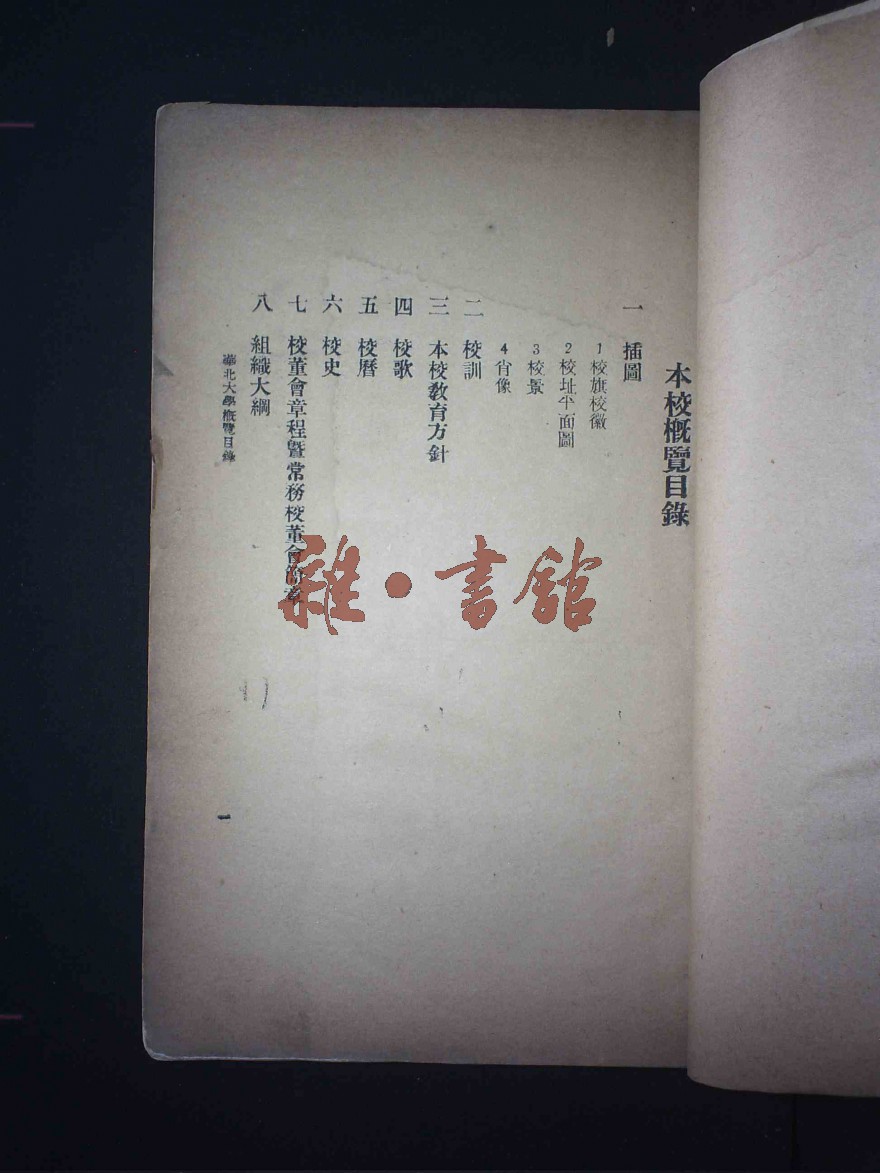 本校槪覽目錄
一 插圖
1 校旗校徽
2 校址平面圖
3 校景
4 肖像
二 校訓
三 本校敎育方針
四 校歌
五 校曆
六 校史
七 校董會章程暨常務校董會簡章
八 組織大綱
華北大學槪覽目錄
一
雜·書館